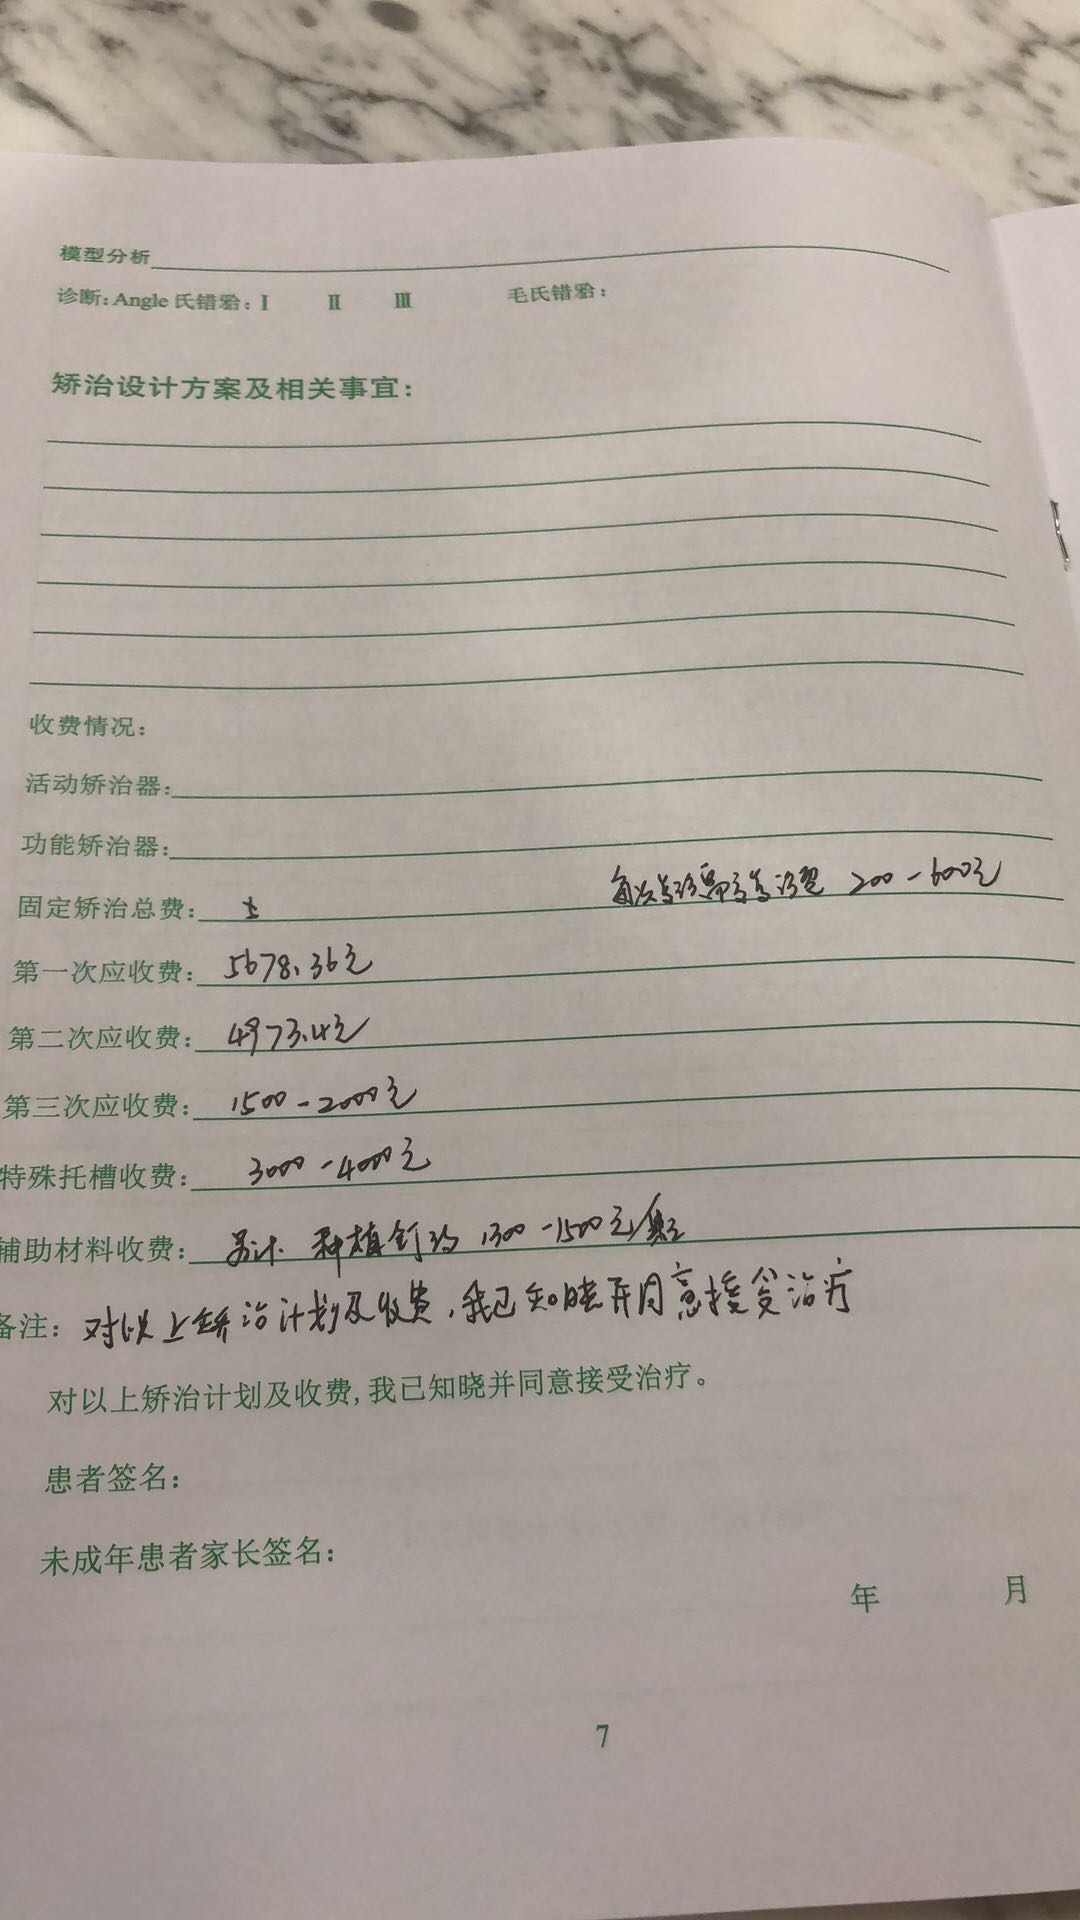 模型分析
诊断:Angle 氏错𬌗:Ⅰ Ⅱ Ⅲ 毛氏错𬌗:
矫治设计方案及相关事宜:
收费情况:
活动矫治器:
功能矫治器:
每次 200-600元
固定矫治总费:
第一次应收费: 5678.36元
第二次应收费: 4973.4元
第三次应收费: 1500-2000元
特殊托槽收费: 3000-4000元
辅助材料收费: 另计 种植钉约 1300-1500元/
备注: 对以上矫治计划及收费,我已知晓并同意接受治疗
对以上矫治计划及收费,我已知晓并同意接受治疗。
患者签名:
未成年患者家长签名:
年 月
7